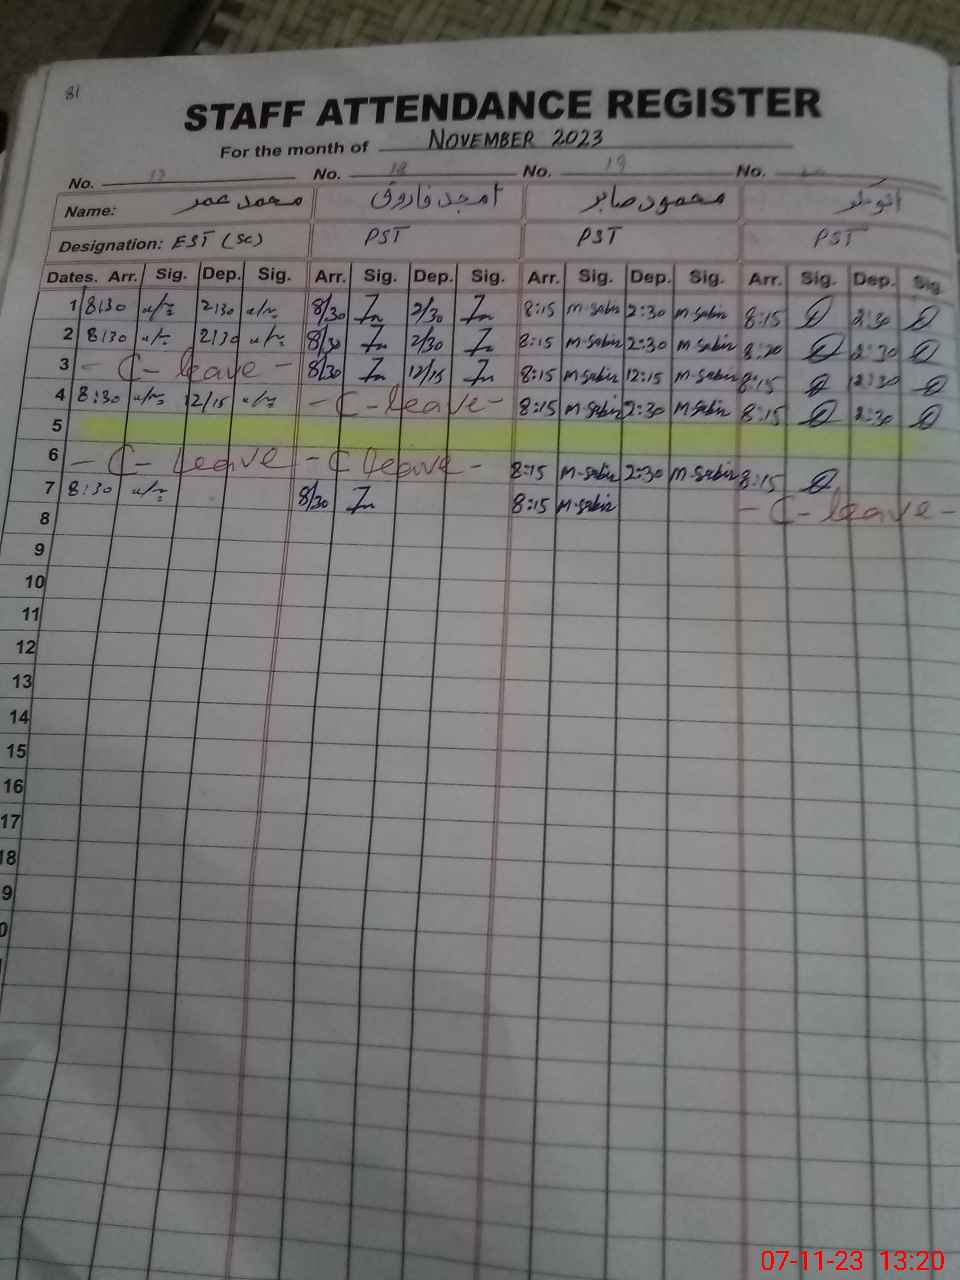 81
STAFF ATTENDANCE REGISTER
For the month of NOVEMBER 2023
No. 17 No. 18 No. 19 No.
Name: محمد عمر امجد فاروق محمود صابر
Designation: EST (SC) PST PST PST
Dates. Arr. Sig. Dep. Sig. Arr. Sig. Dep. Sig. Arr. Sig. Dep. Sig. Arr. Sig. Dep. Sig.
1 8:30 2:30 8/30 2/30 8:15 M-Sabir 2:30 M-Sabir 8:15 2:30
2 8:30 2:30 8/30 2/30 8:15 M-Sabir 2:30 M-Sabir 8:20 2:30
3 - C- leave - 8/30 12/15 8:15 M-Sabir 12:15 M-Sabir 8:15 12:30
4 8:30 12/15 - C- leave - 8:15 M-Sabir 2:30 M-Sabir 8:15 2:30
5
6 - C- leave - C leave - 8:15 M-Sabir 2:30 M-Sabir 8:15
7 8:30 8/30 8:15 M-Sabir - C- leave -
8
9
10
11
12
13
14
15
16
17
18
9
0
07-11-23 13:20